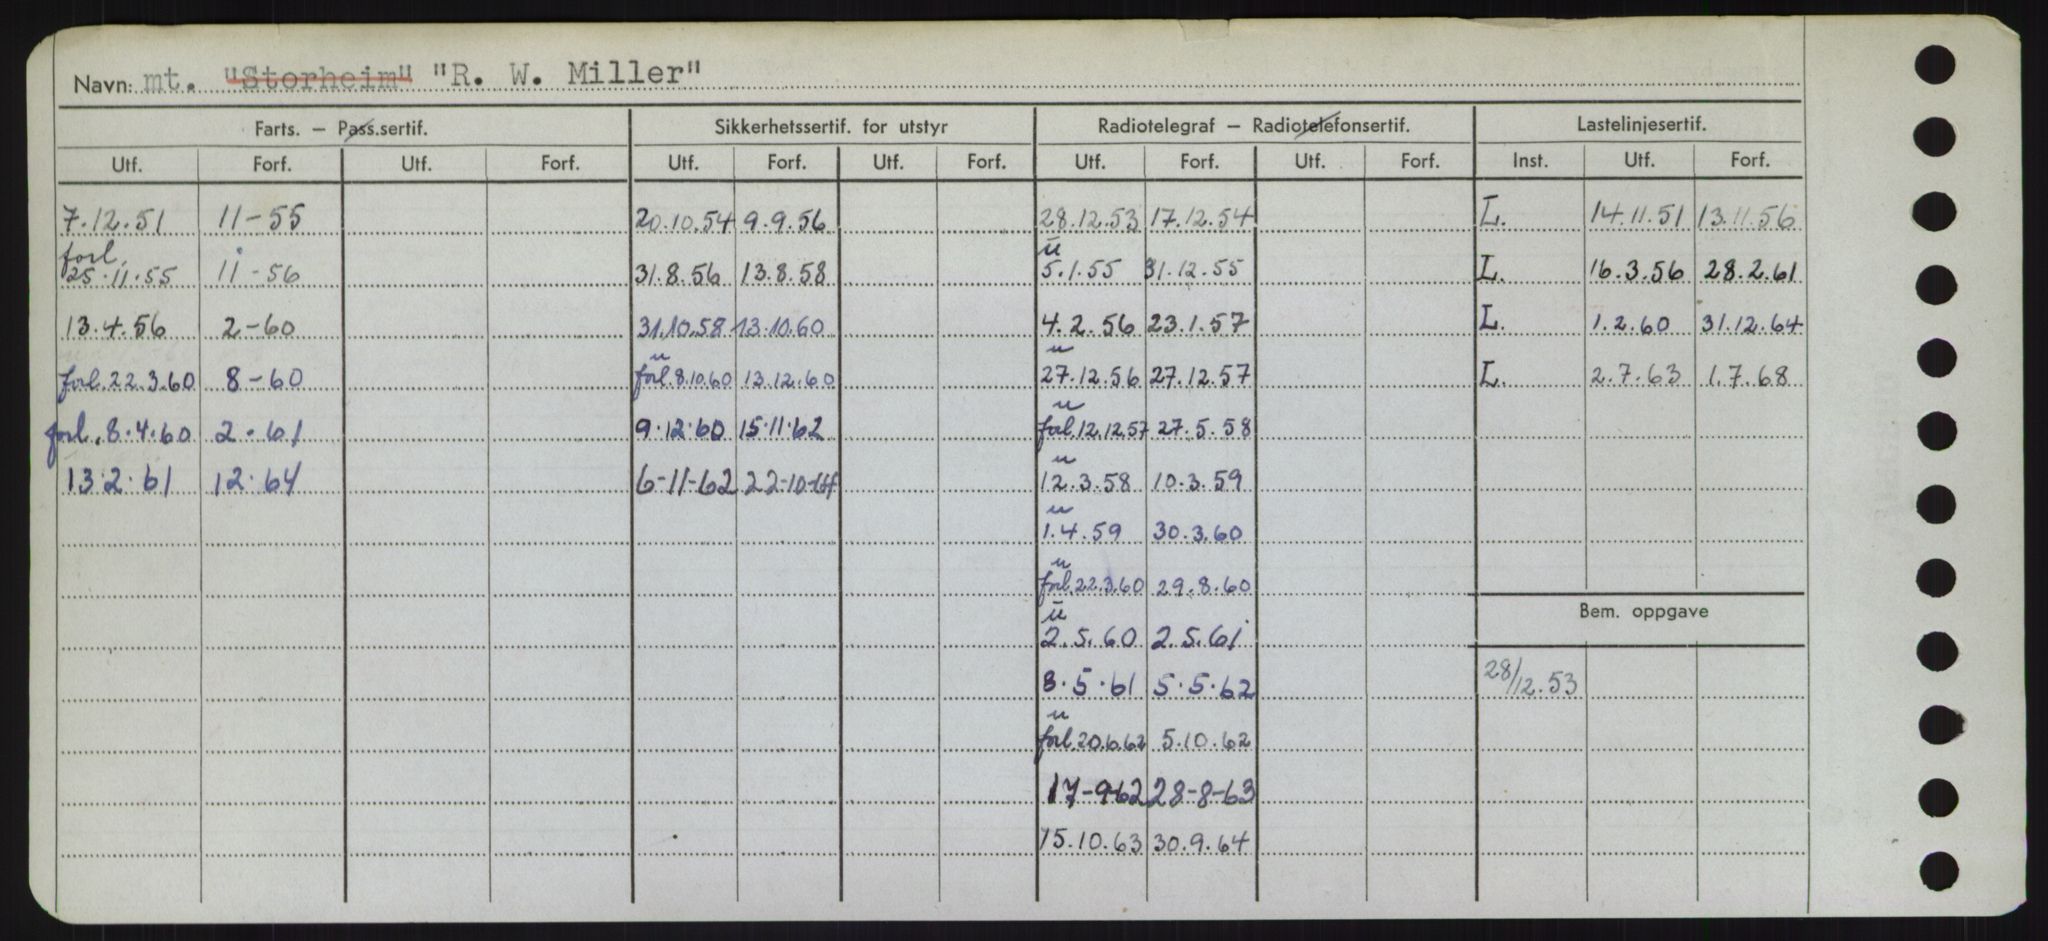 Navn: mt. "Storheim" "R. W. Miller"
Farts. – Pass.sertif. Sikkerhetssertif. for utstyr Radiotelegraf – Radiotelefonsertif. Lastelinjesertif.
Utf. Forf. Utf. Forf. Utf. Forf. Utf. Forf. Utf. Forf. Utf. Forf. Inst. Utf. Forf.
7.12.51 11-55 20.10.54 9.9.56 28.12.53 17.12.54 L. 14.11.51 13.11.56
forl. u
25.11.55 11-56 31.8.56 13.8.58 5.1.55 31.12.55 L. 16.3.56 28.2.61
13.4.56 2-60 31.10.58 13.10.60 4.2.56 23.1.57 L. 1.2.60 31.12.64
u u
forl. 22.3.60 8-60 forl 8.10.60 13.12.60 27.12.56 27.12.57 L. 2.7.63 1.7.68
u
forl. 8.4.60 2.61 9.12.60 15.11.62 forl. 12.12.57 27.5.58
u
13.2.61 12.64 6-11-62 22-10-64 12.3.58 10.3.59
u
1.4.59 30.3.60
u
forl. 22.3.60 29.8.60
Bem. oppgave
u
2.5.60 2.5.61
28/12.53
8.5.61 5.5.62
u
forl. 20.6.62 5.10.62
17-9-62 28-8-63
15.10.63 30.9.64